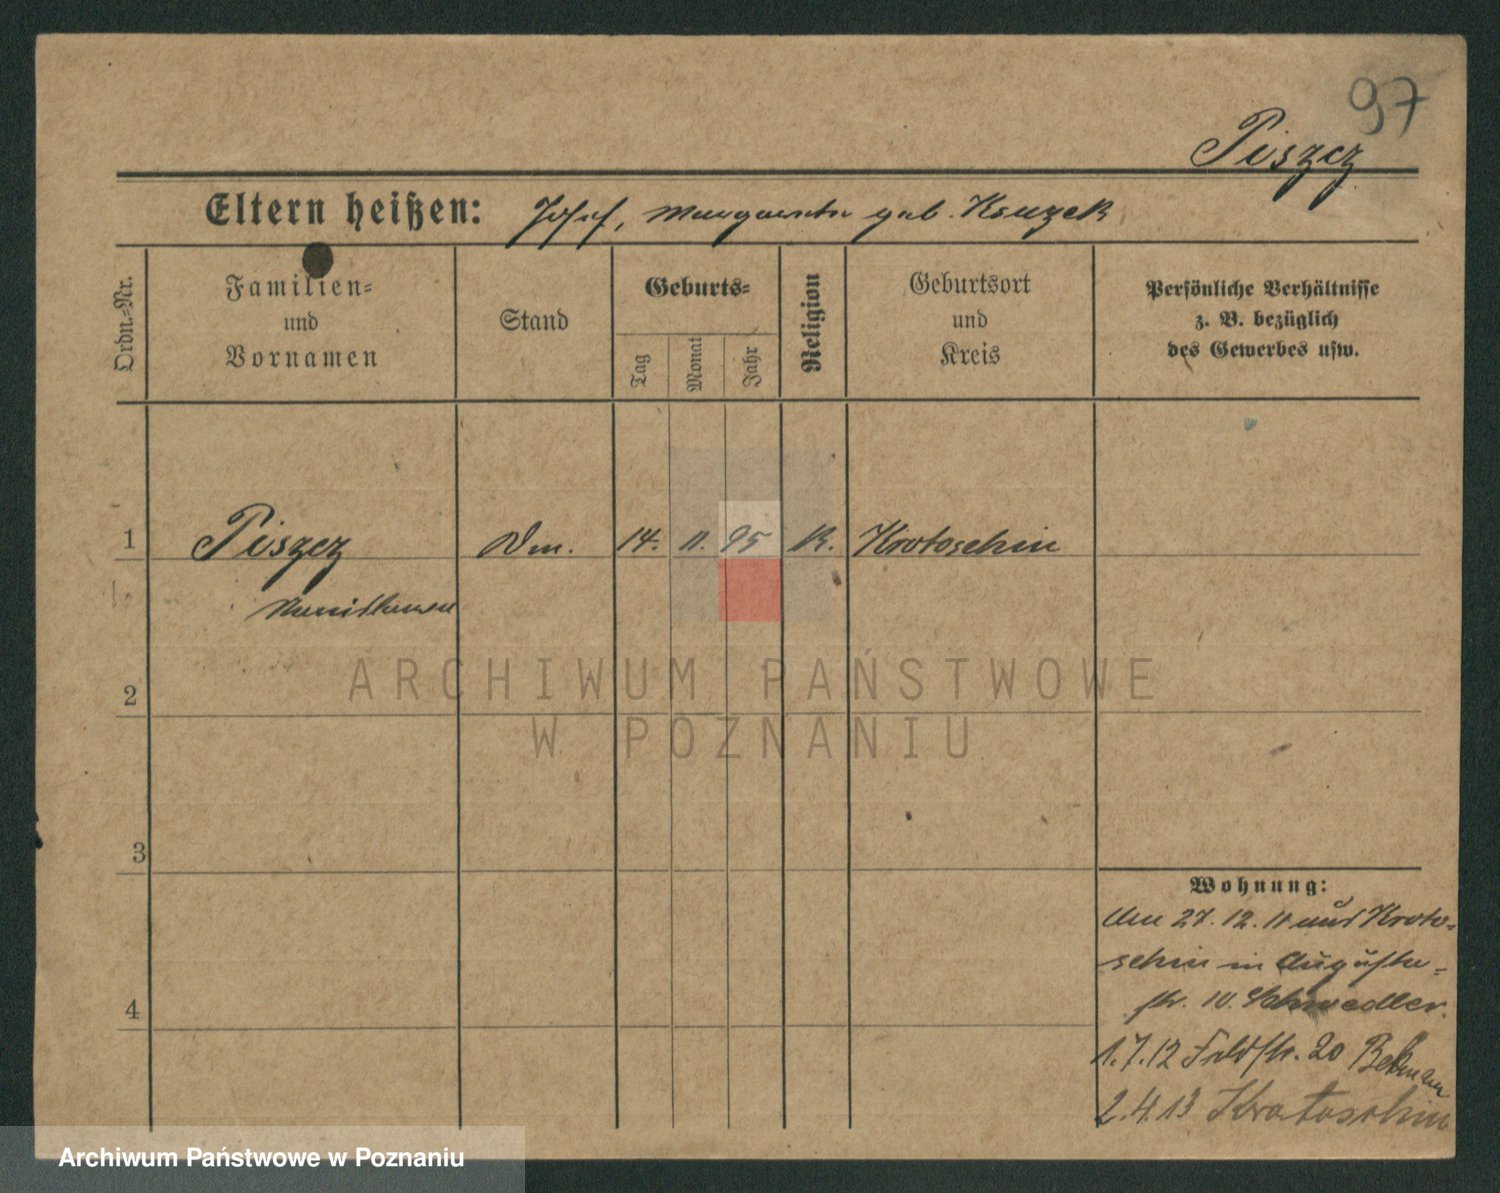 97
Piszcz
Eltern heißen: Josef, Margaretha geb.
Ordn.-Nr.
Familien-
und
Vornamen
Stand
Geburts-
Tag
Monat
Jahr
Religion
Geburtsort
und
Kreis
Persönliche Verhältnisse
z. B. bezüglich
des Gewerbes usw.
1 Piszcz Dm. 14. 11. 95 K. Krotoschin
2
3
4
Wohnung:
Am 27. 12. 11 aus Kroto-
schin in Auguste-
str. 10. Schwedler.
1.7.12 Feldstr. 20
2.4.13 Krotoschin
ARCHIWUM PAŃSTWOWE
W POZNANIU
Archiwum Państwowe w Poznaniu